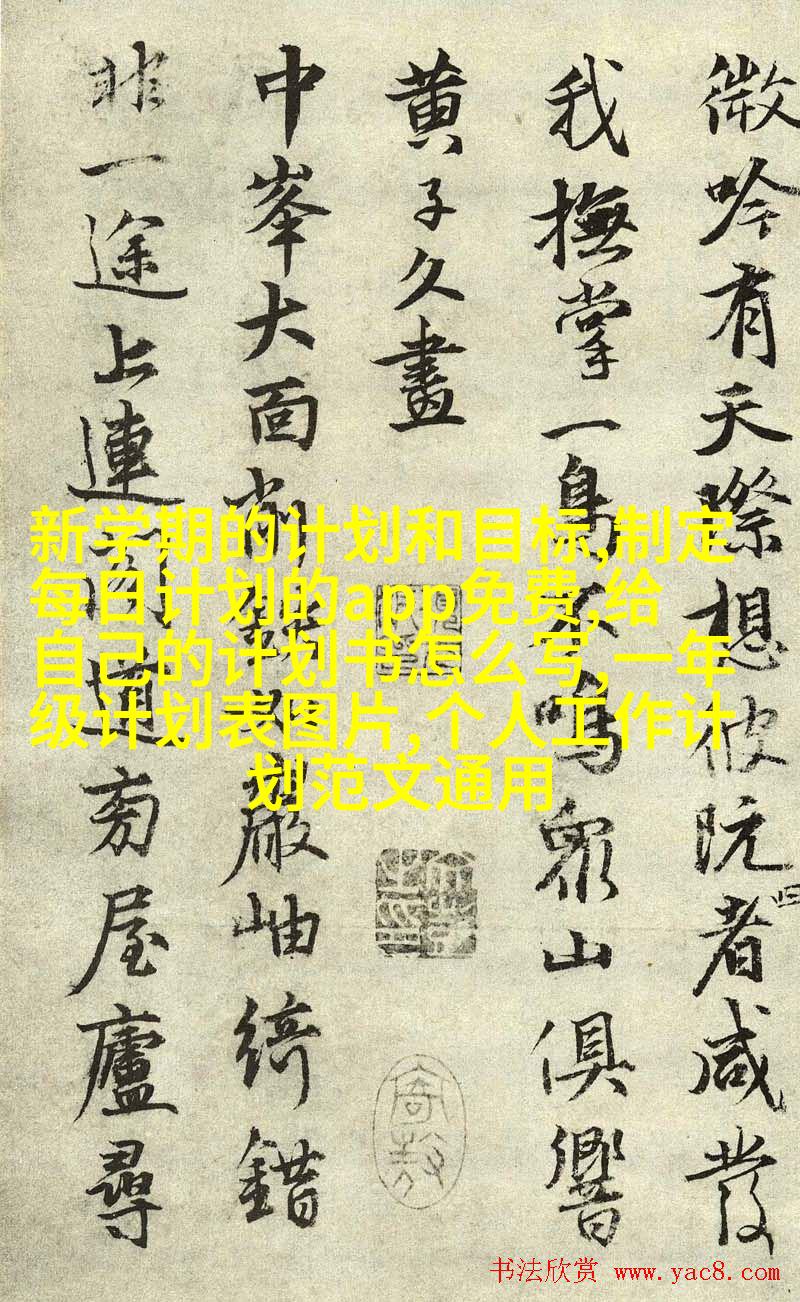 微吟有天際想彼阮者咸發
我撫掌一鳥不鳴眾山俱響
黃子久畫
中峯大面削岫綺錯
非一途上連道旁屋廬尋
新学期的计划和目标,制定
每日计划的app免费,给
自己的计划书怎么写,一年
级计划表图片,个人工作计
划范文通用
书法欣赏 www.yac8.com